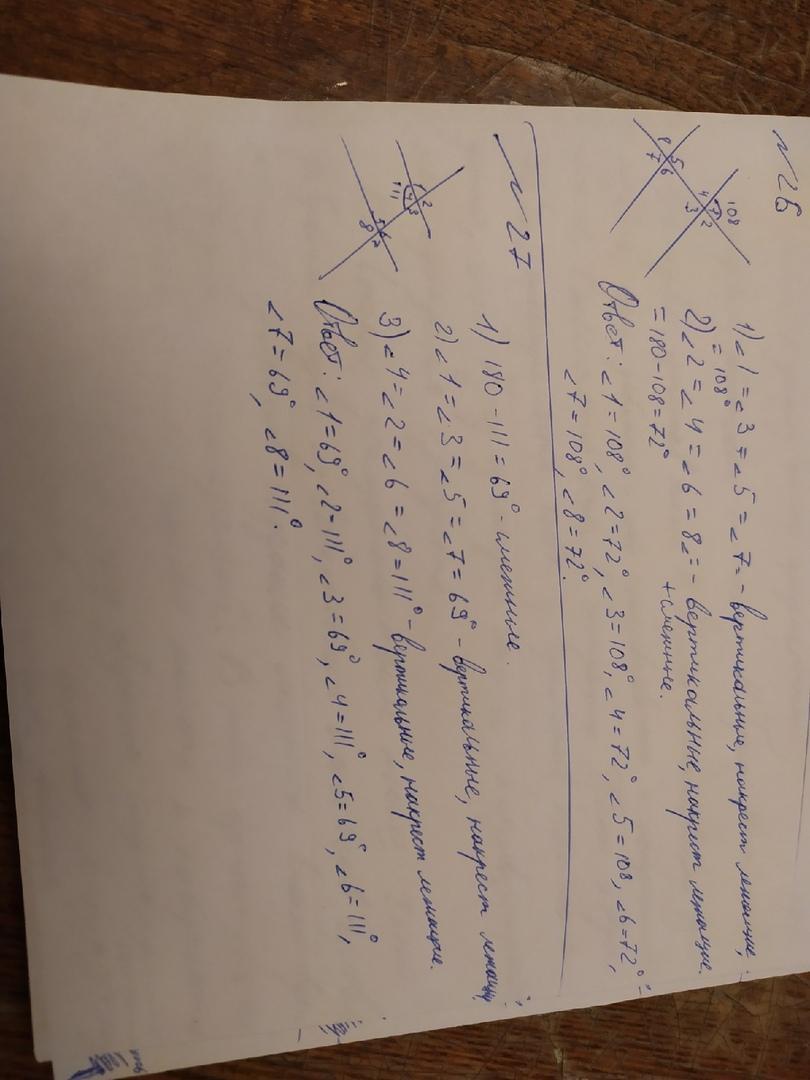 №26
108
1 2 3 4
5 6 7 8
1) ∠1 = ∠3 = ∠5 = ∠7 = - вертикальные, накрест лежащие,
= 108°
2) ∠2 = ∠4 = ∠6 = 8∠ = - вертикальные, накрест лежащие.
= 180-108=72° + смежные.
Ответ: ∠1=108°, ∠2=72°, ∠3=108°, ∠4=72°, ∠5=108, ∠6=72°,
∠7=108°, ∠8=72°.
№27
111
1 2 3 4
5 6 7 8
1) 180-111=69° - смежные.
2) ∠1=∠3=∠5=∠7=69° - вертикальные, накрест
3) ∠4=∠2=∠6=∠8=111° - вертикальные, накрест лежащие.
Ответ: ∠1=69°, ∠2=111°, ∠3=69°, ∠4=111°, ∠5=69°, ∠6=111°,
∠7=69°, ∠8=111°.